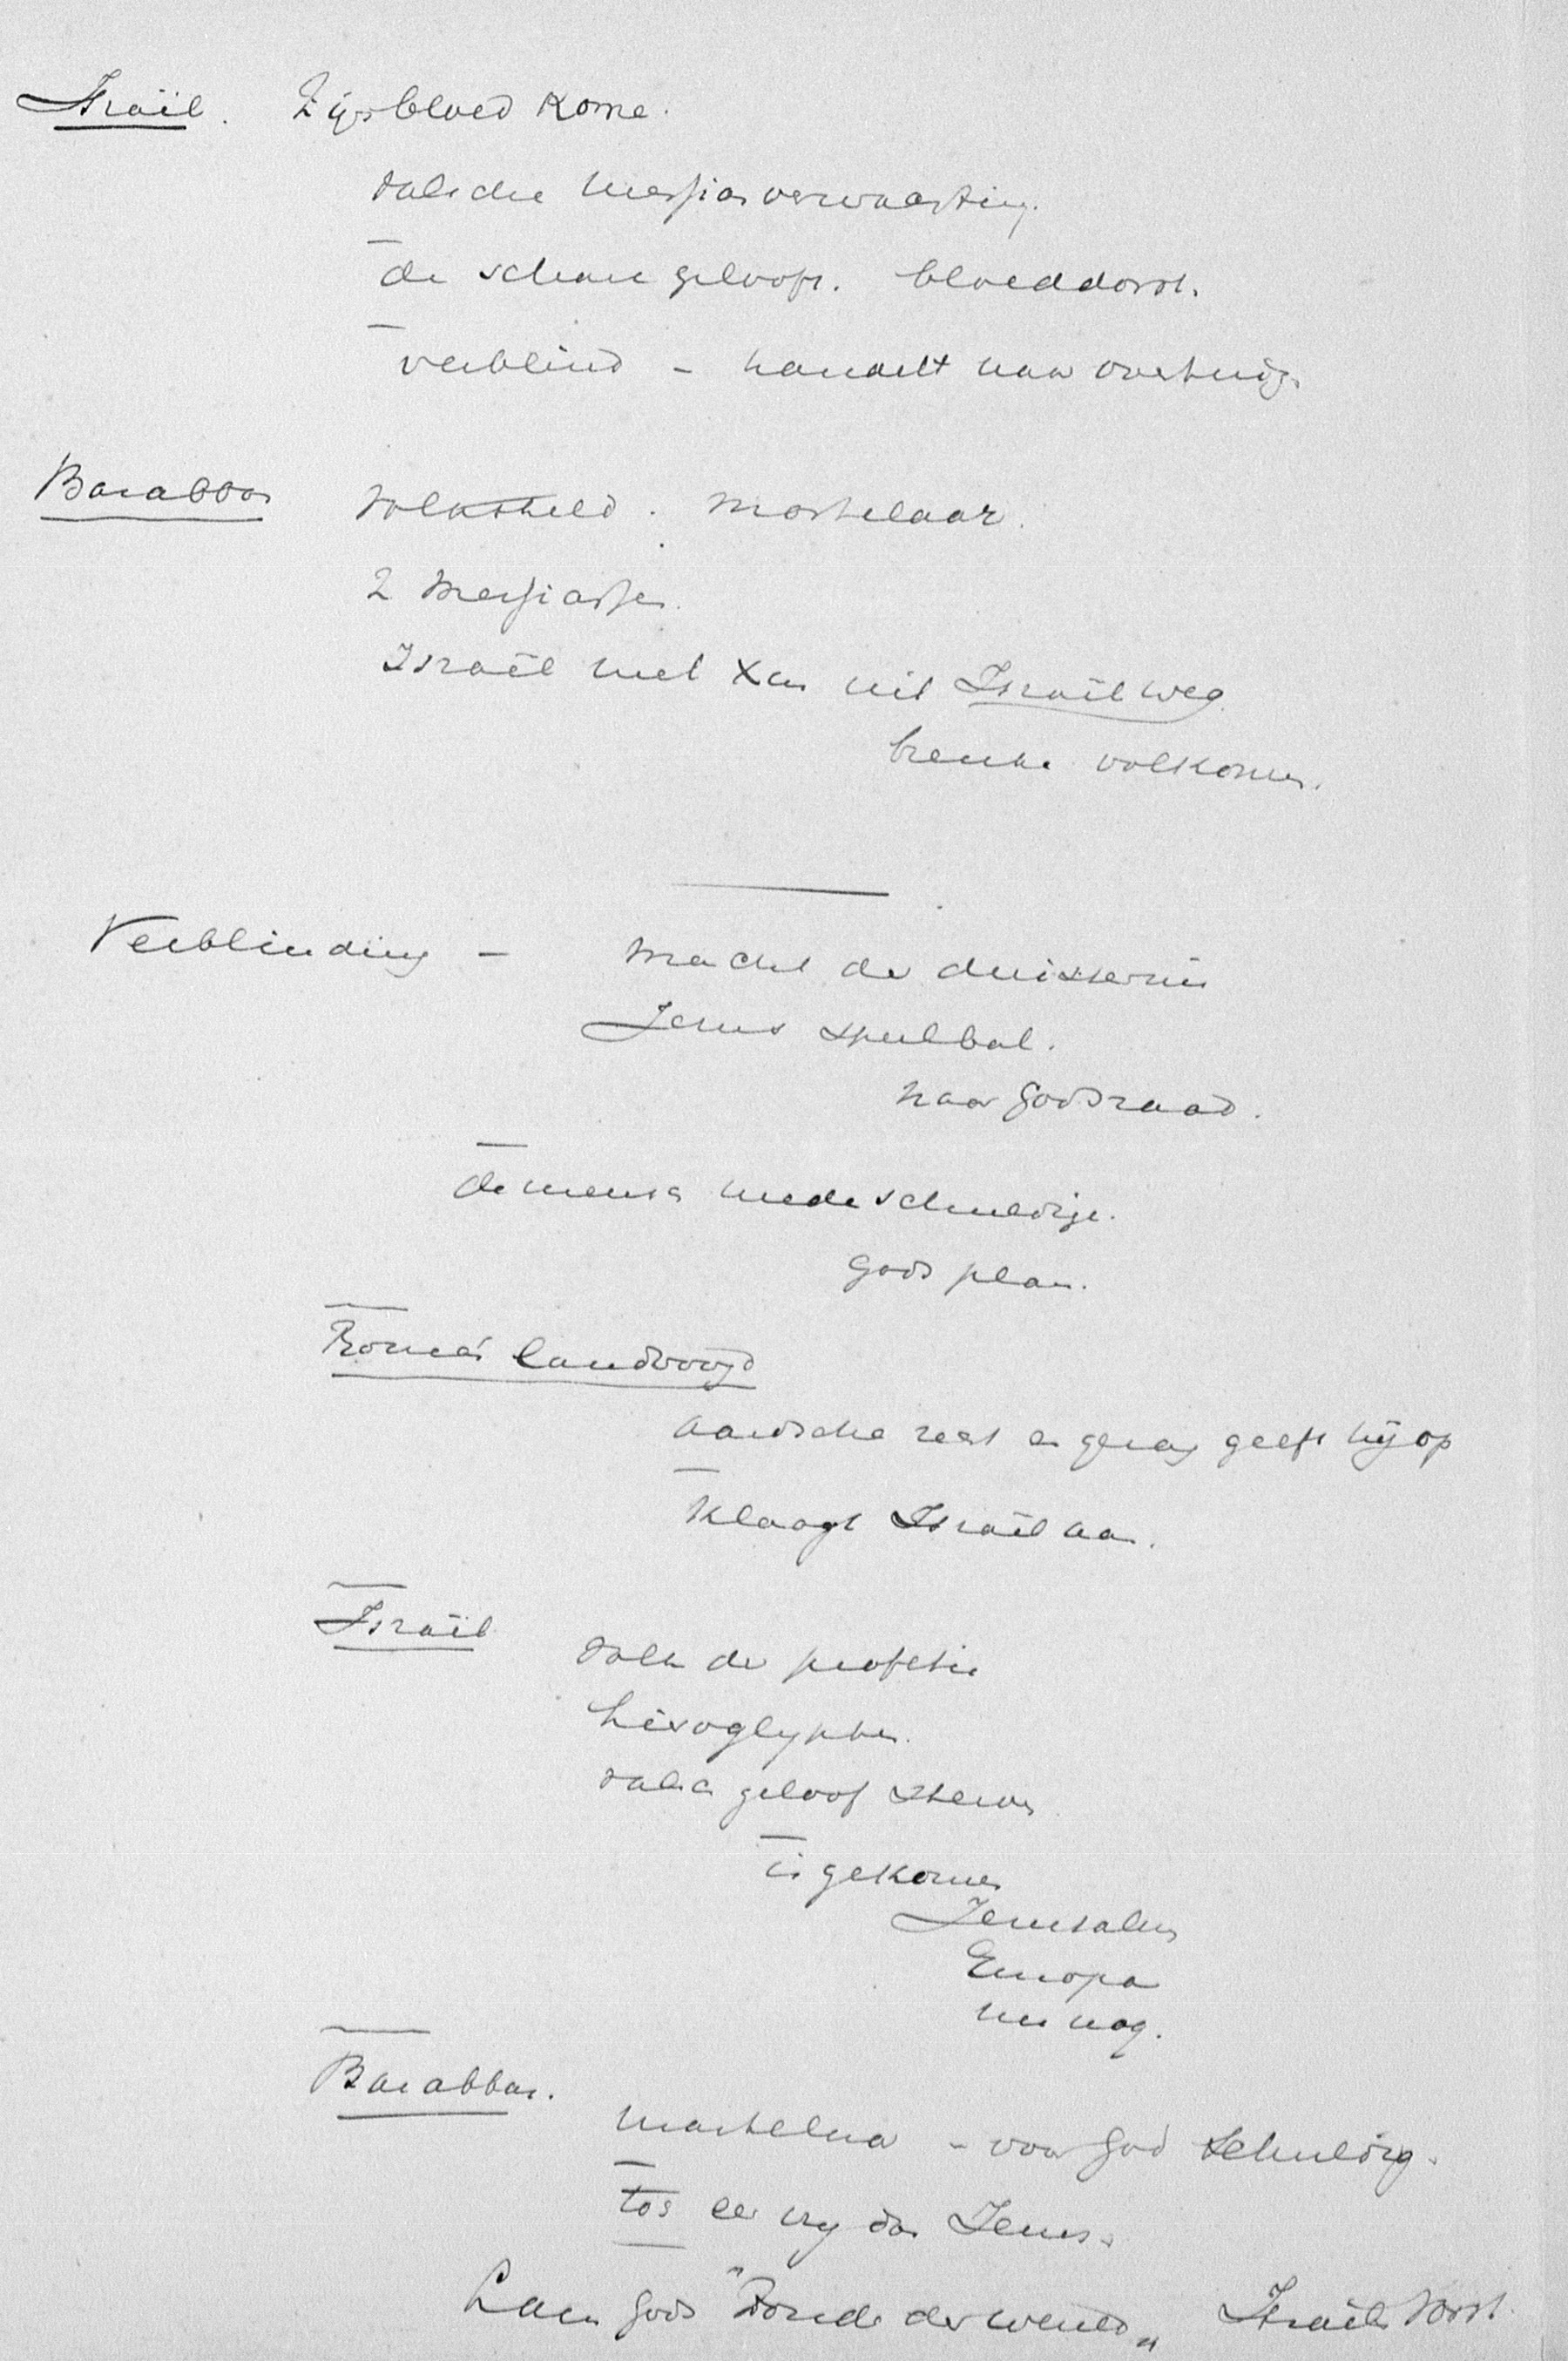 Israël. Zijn bloed kome.
valsche Messiasverwachting.
de schare gelooft. bloeddorst.
verblind - handelt naar overtuig.
Barabbas volksheld. martelaar.
2 Messiassen.
Israël met Xus uit Israël weg.
breuke volkomen.
Verblinding - macht der duisternis
Jesus speelbal.
naar Gods raad.
de mensch medeschuldige.
Gods plan.
Rome's landvoogd
aardsche recht en gezag geeft hij op
klaagt Israël aan.
Israël
volk der profetie
hieroglyphe.
valsch geloof
is gekomen
Jerusalem
Europa
nu nog.
Barabbas.
martelaar - voor God schuldig.
los en vrij door Jesus.
Lam Gods "Zonde der wereld" Israëls Vorst